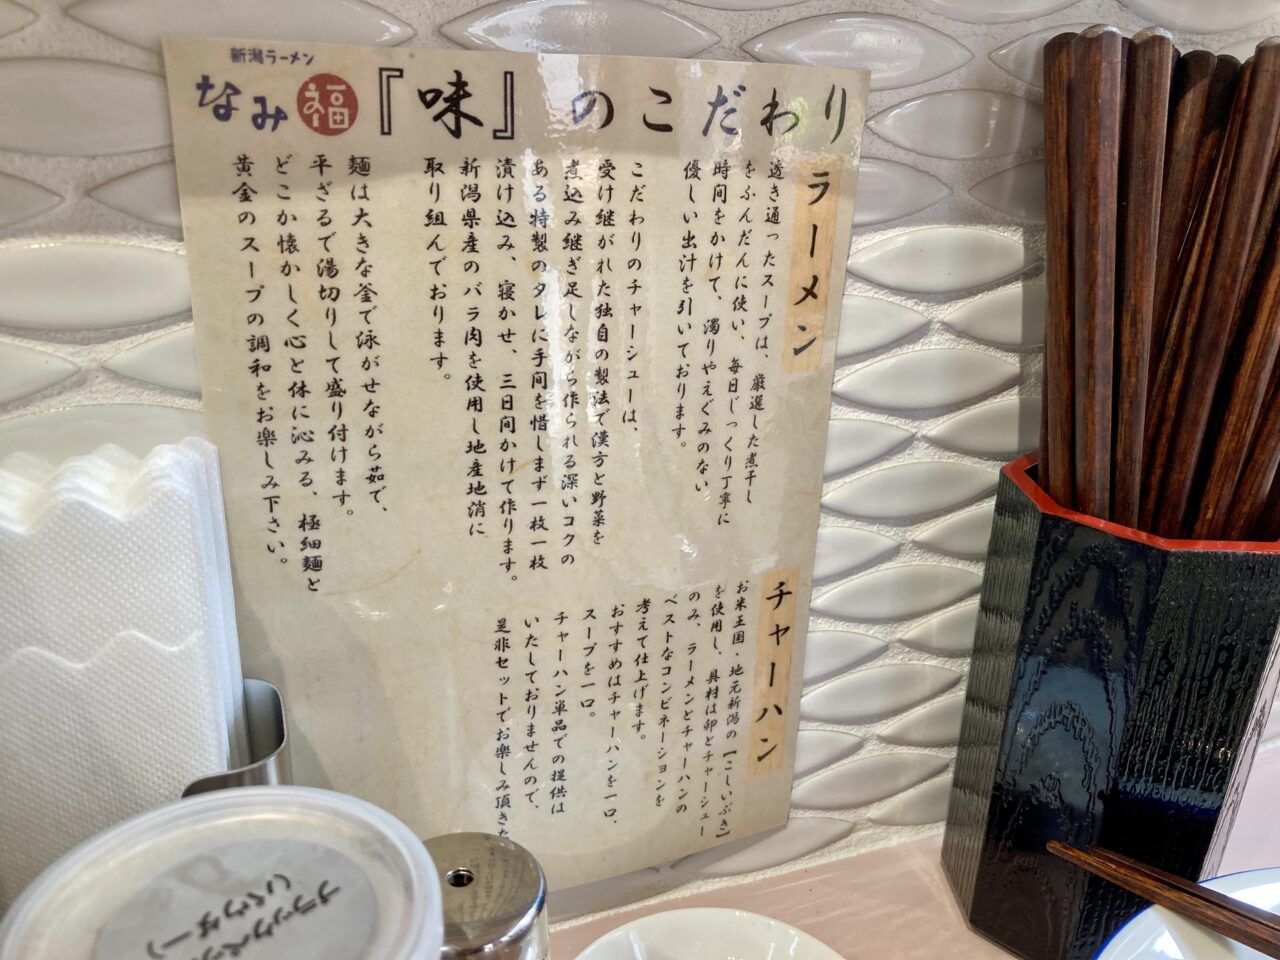 新潟ラーメン
なみ福『味』のこだわり
ラーメン
透き通ったスープは、厳選した煮干し
をふんだんに使い、毎日じっくり丁寧に
時間をかけて、濁りやえぐみのない
優しい出汁を引いております。
こだわりのチャーシューは、
受け継がれた独自の製法で漢方と野菜を
煮込み継ぎ足しながら作られる深いコクの
ある特製のタレに手間を惜しまず一枚一枚
漬け込み、寝かせ、三日間かけて作ります。
新潟県産のバラ肉を使用し地産地消に
取り組んでおります。
麺は大きな釜で泳がせながら茹で、
平ざるで湯切りして盛り付けます。
どこか懐かしく心と体に沁みる、極細麺と
黄金のスープの調和をお楽しみ下さい。
チャーハン
お米王国・地元新潟の【こしいぶき】
を使用し、具材は卵とチャーシュー
のみ、ラーメンとチャーハンの
ベストなコンビネーションを
考えて仕上げます。
おすすめはチャーハンを一口、
スープを一口。
チャーハン単品での提供は
いたしておりませんので、
是非セットでお楽しみ頂きた
ブラックペッ
(パウダー)